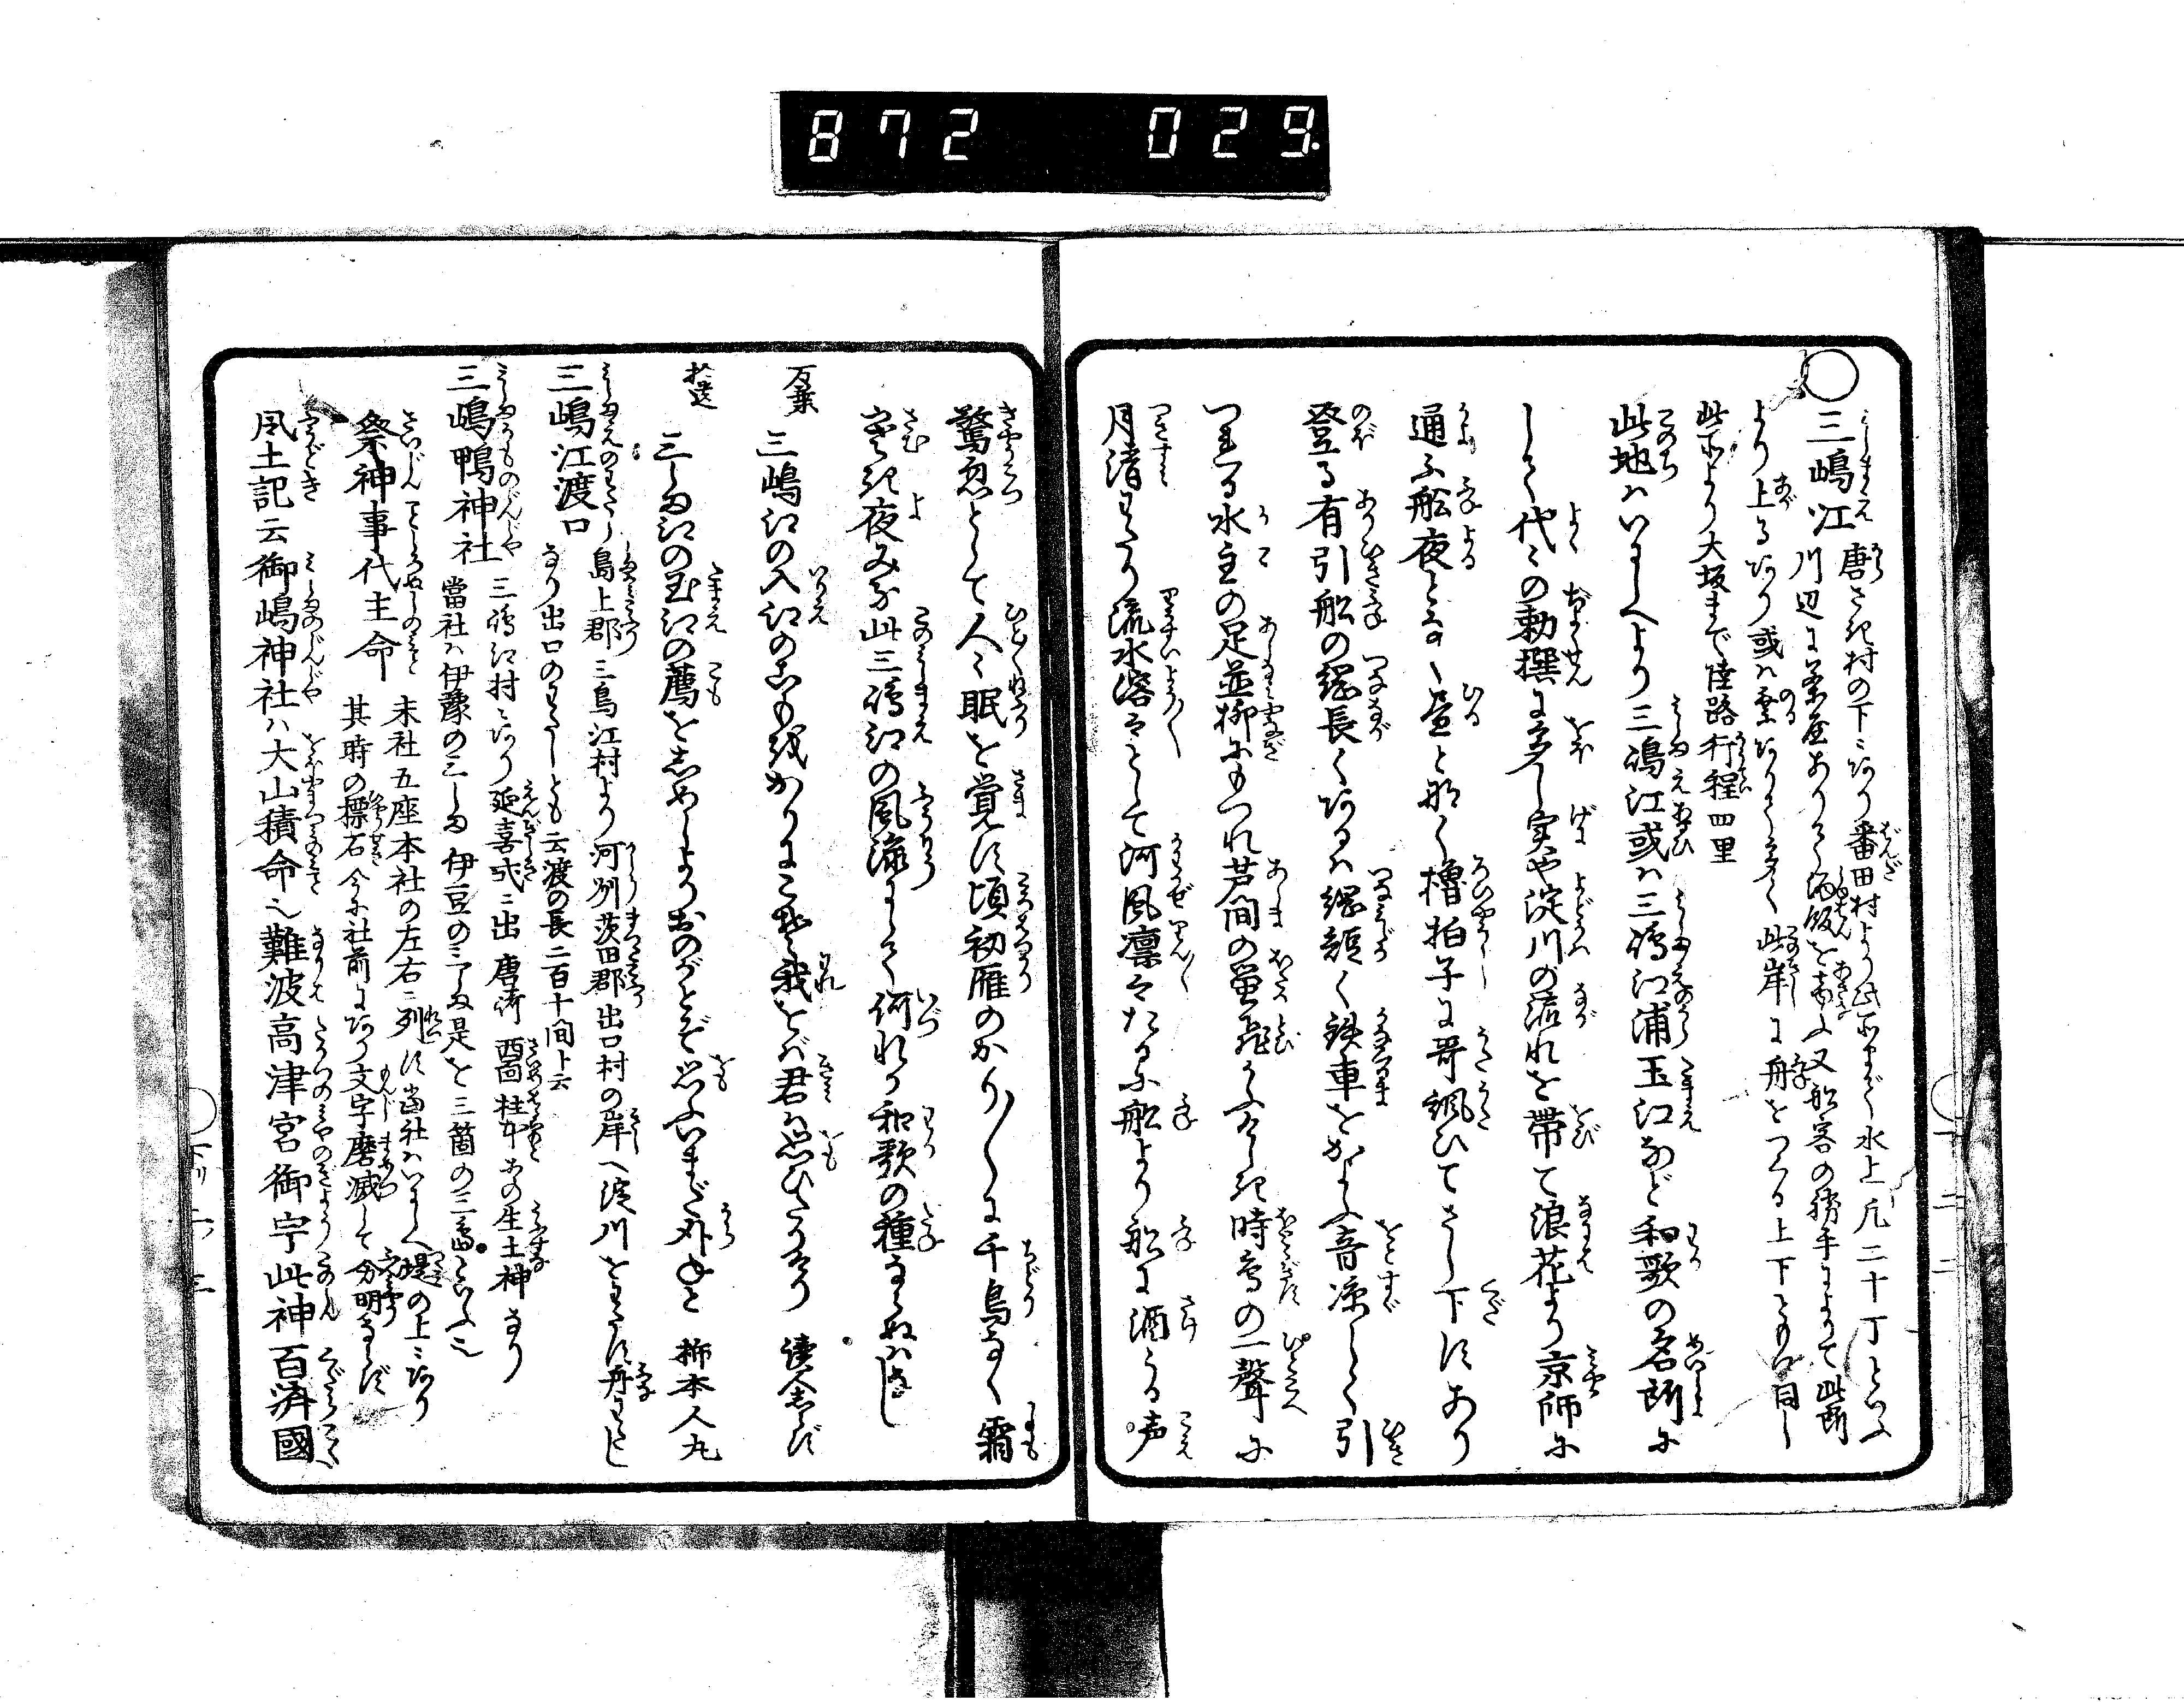 872 029
三嶋江 唐さき村の下ニあり番田村より此所まで水上凡二十丁といふ
川辺に茶屋ありて酒飯をあきなふ又船客の勝手によりて此所
より上るあり或は乗ありて多く此岸に舟をつくる上下とも同し
此所より大坂まで陸路行程四里
此地ハいにしへより三嶋江或ハ三嶋江浦玉江など和歌の名所に
して代々の勅撰に多し実や淀川の流れを帯て浪花より京師に
通ふ舩夜となく昼と那く櫓拍子に哥諷ひてさし下すあり
登る有引船の縄長くあるハ縄短く鉄車をかよふ音凉しく引
つれる水主の足並柳にもつれ芦間の蛍飛かふ時鳥の一聲に
月清わたり流水溶々として河風凛々たるに船より船に酒うる声
驚忽として人々眠を覚す頃初雁のかり〳〵に千鳥なく霜
寒き夜みな此三嶋江の風流にして何れか和歌の種ならぬハなし
万葉 三嶋江の入江のこもをかりにこそ我をバ君ハ思ひたりけれ 読人しらず
拾遺 三しま江の玉江の薦をしめしよりおのがとぞ思ふいまだからねと 柿本人丸
三嶋江渡口 島上郡三島江村より河州茨田郡出口村の岸へ淀川をわたす舟わたし
なり出口のわたしとも云渡の長二百十間ト云
三嶋鴨神社 三嶋江村ニあり延喜式ニ出唐崎 西面 柱本 等の生土神なり
當社ハ伊豫の三しま伊豆の三しま是を三箇の三嶋といふ也
祭神事代主命 末社五座本社の左右ニ列す当社ハいにしへ堤の上ニあり
其時の標石今に社前にあり文字磨滅して分明ならず
風土記云御嶋神社ハ大山積命也難波高津宮御宇此神百済國